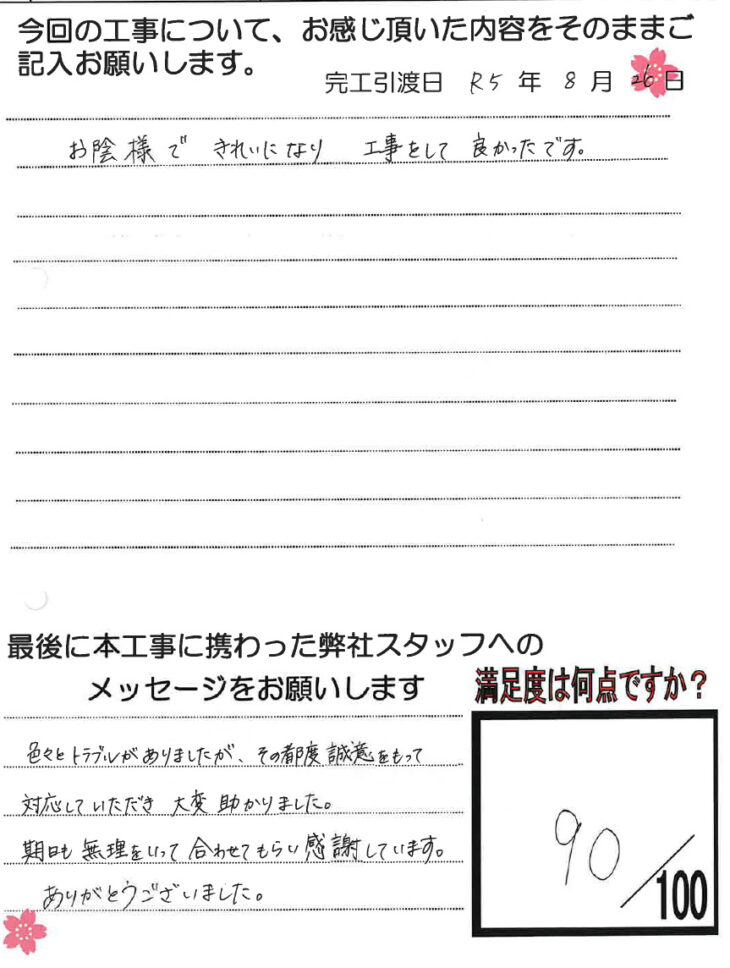 今回の工事について、お感じ頂いた内容をそのままご
記入お願いします。
完工引渡日 R5 年 8 月 26 日
お陰様で きれいになり 工事をして 良かったです。
最後に本工事に携わった弊社スタッフへの
メッセージをお願いします
色々とトラブルがありましたが、その都度誠意をもって
対応していただき 大変 助かりました。
期日も 無理をいって 合わせてもらい 感謝しています。
ありがとうございました。
満足度は何点ですか?
90/100